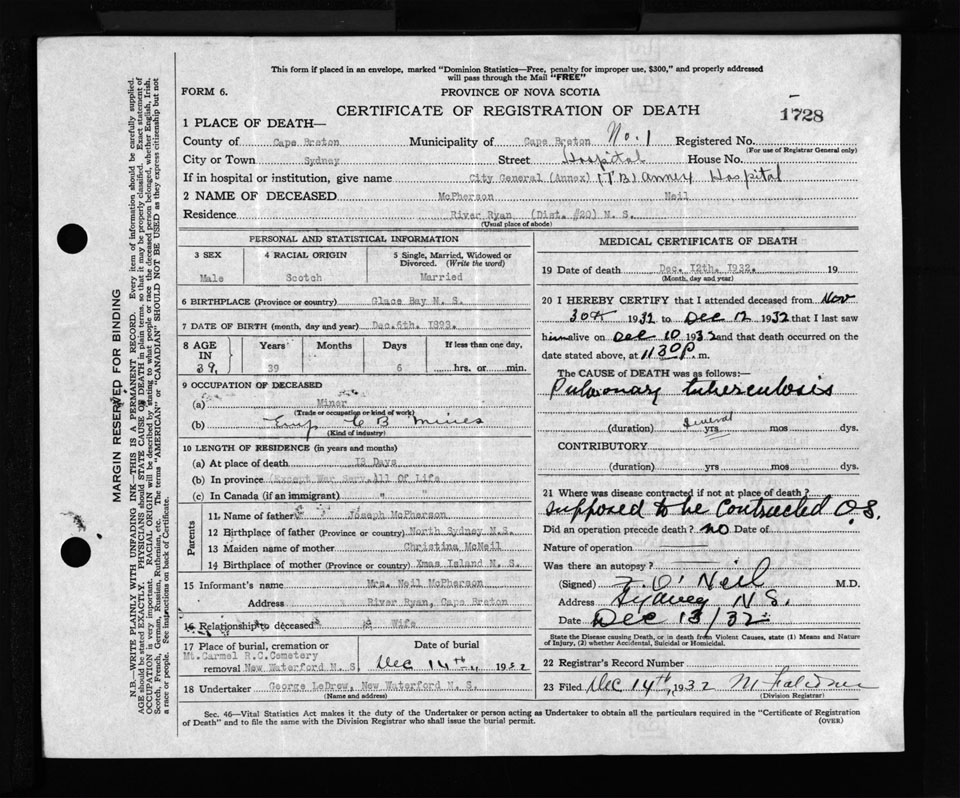 This form if placed in an envelope, marked "Dominion Statistics—Free, penalty for improper use, $300," and properly addressed
will pass through the Mail "FREE"
FORM 6.
PROVINCE OF NOVA SCOTIA
CERTIFICATE OF REGISTRATION OF DEATH
1728
1 PLACE OF DEATH—
County of Cape Breton Municipality of Cape Breton No. 1 Registered No.
(For use of Registrar General only)
City or Town Sydney Street Hospital House No.
If in hospital or institution, give name City General (Annex) (T B) Annex Hospital
2 NAME OF DECEASED McPherson Neil
Residence River Ryan (Dist. #20) N. S.
(Usual place of abode)
PERSONAL AND STATISTICAL INFORMATION
3 SEX 4 RACIAL ORIGIN 5 Single, Married, Widowed or
Divorced. (Write the word)
Male Scotch Married
6 BIRTHPLACE (Province or country) Glace Bay N. S.
7 DATE OF BIRTH (month, day and year) Dec. 6th. 1893.
8 AGE IN Years Months Days If less than one day,
39, 39 6 hrs. or min.
9 OCCUPATION OF DECEASED
(a) Miner
(Trade or occupation or kind of work)
(b) Emp C B Mines
(Kind of industry)
10 LENGTH OF RESIDENCE (in years and months)
(a) At place of death 13 Days
(b) In province (Except War Serv. All Of Life
(c) In Canada (if an immigrant) " "
Parents
11 Name of father Joseph McPherson
12 Birthplace of father (Province or country) North Sydney N.S.
13 Maiden name of mother Christina McNeil
14 Birthplace of mother (Province or country) Xmas Island N. S.
15 Informant's name Mrs. Neil McPherson
Address River Ryan, Cape Breton
16 Relationship to deceased Wife
17 Place of burial, cremation or Date of burial
Mt. Carmel R.C. Cemetery
removal New Waterford N. S. Dec 14th 1932
18 Undertaker George LeDrew, New Waterford N. S.
(Name and address)
MEDICAL CERTIFICATE OF DEATH
19 Date of death Dec. 12th. 1932. 19
(Month, day and year)
20 I HEREBY CERTIFY that I attended deceased from Nov
30th 1932 to Dec 12 1932 that I last saw
him alive on Dec 10 1932 and that death occurred on
date stated above, at 11 30 P. m.
The CAUSE of DEATH was as follows:—
Pulmonary tuberculosis
(duration) Several yrs mos dys.
CONTRIBUTORY
(duration) yrs mos dys.
21 Where was disease contracted if not at place of death?
Supposed to be contracted O.S.
Did an operation precede death? no Date of
Nature of operation
Was there an autopsy?
(Signed) F. O'Neil M.D.
Address Sydney N S.
Date Dec 13/32
State the Disease causing Death, or in death from Violent Causes, state (1) Means and Nature
of Injury, (2) whether Accidental, Suicidal or Homicidal.
22 Registrar's Record Number
23 Filed Dec 14th, 1932
(Division Registrar)
Sec. 46—Vital Statistics Act makes it the duty of the Undertaker or person acting as Undertaker to obtain all the particulars required in the "Certificate of Registration
of Death" and to file the same with the Division Registrar who shall issue the burial permit.
(OVER)
MARGIN RESERVED FOR BINDING
N.B.—WRITE PLAINLY WITH UNFADING INK—THIS IS A PERMANENT RECORD. Every item of information should be carefully supplied.
AGE should be stated EXACTLY. PHYSICIANS should STATE CAUSE OF DEATH in plain terms, so that it may be properly classified. Exact statement of
OCCUPATION is very important. RACIAL ORIGIN will be described by stating to what people or race the deceased person belonged, whether English, Irish,
Scotch, French, German, Russian, Ruthenian, etc. The terms "AMERICAN" or "CANADIAN" SHOULD NOT BE USED as they express citizenship but not
a race or people. See instructions on back of Certificate.